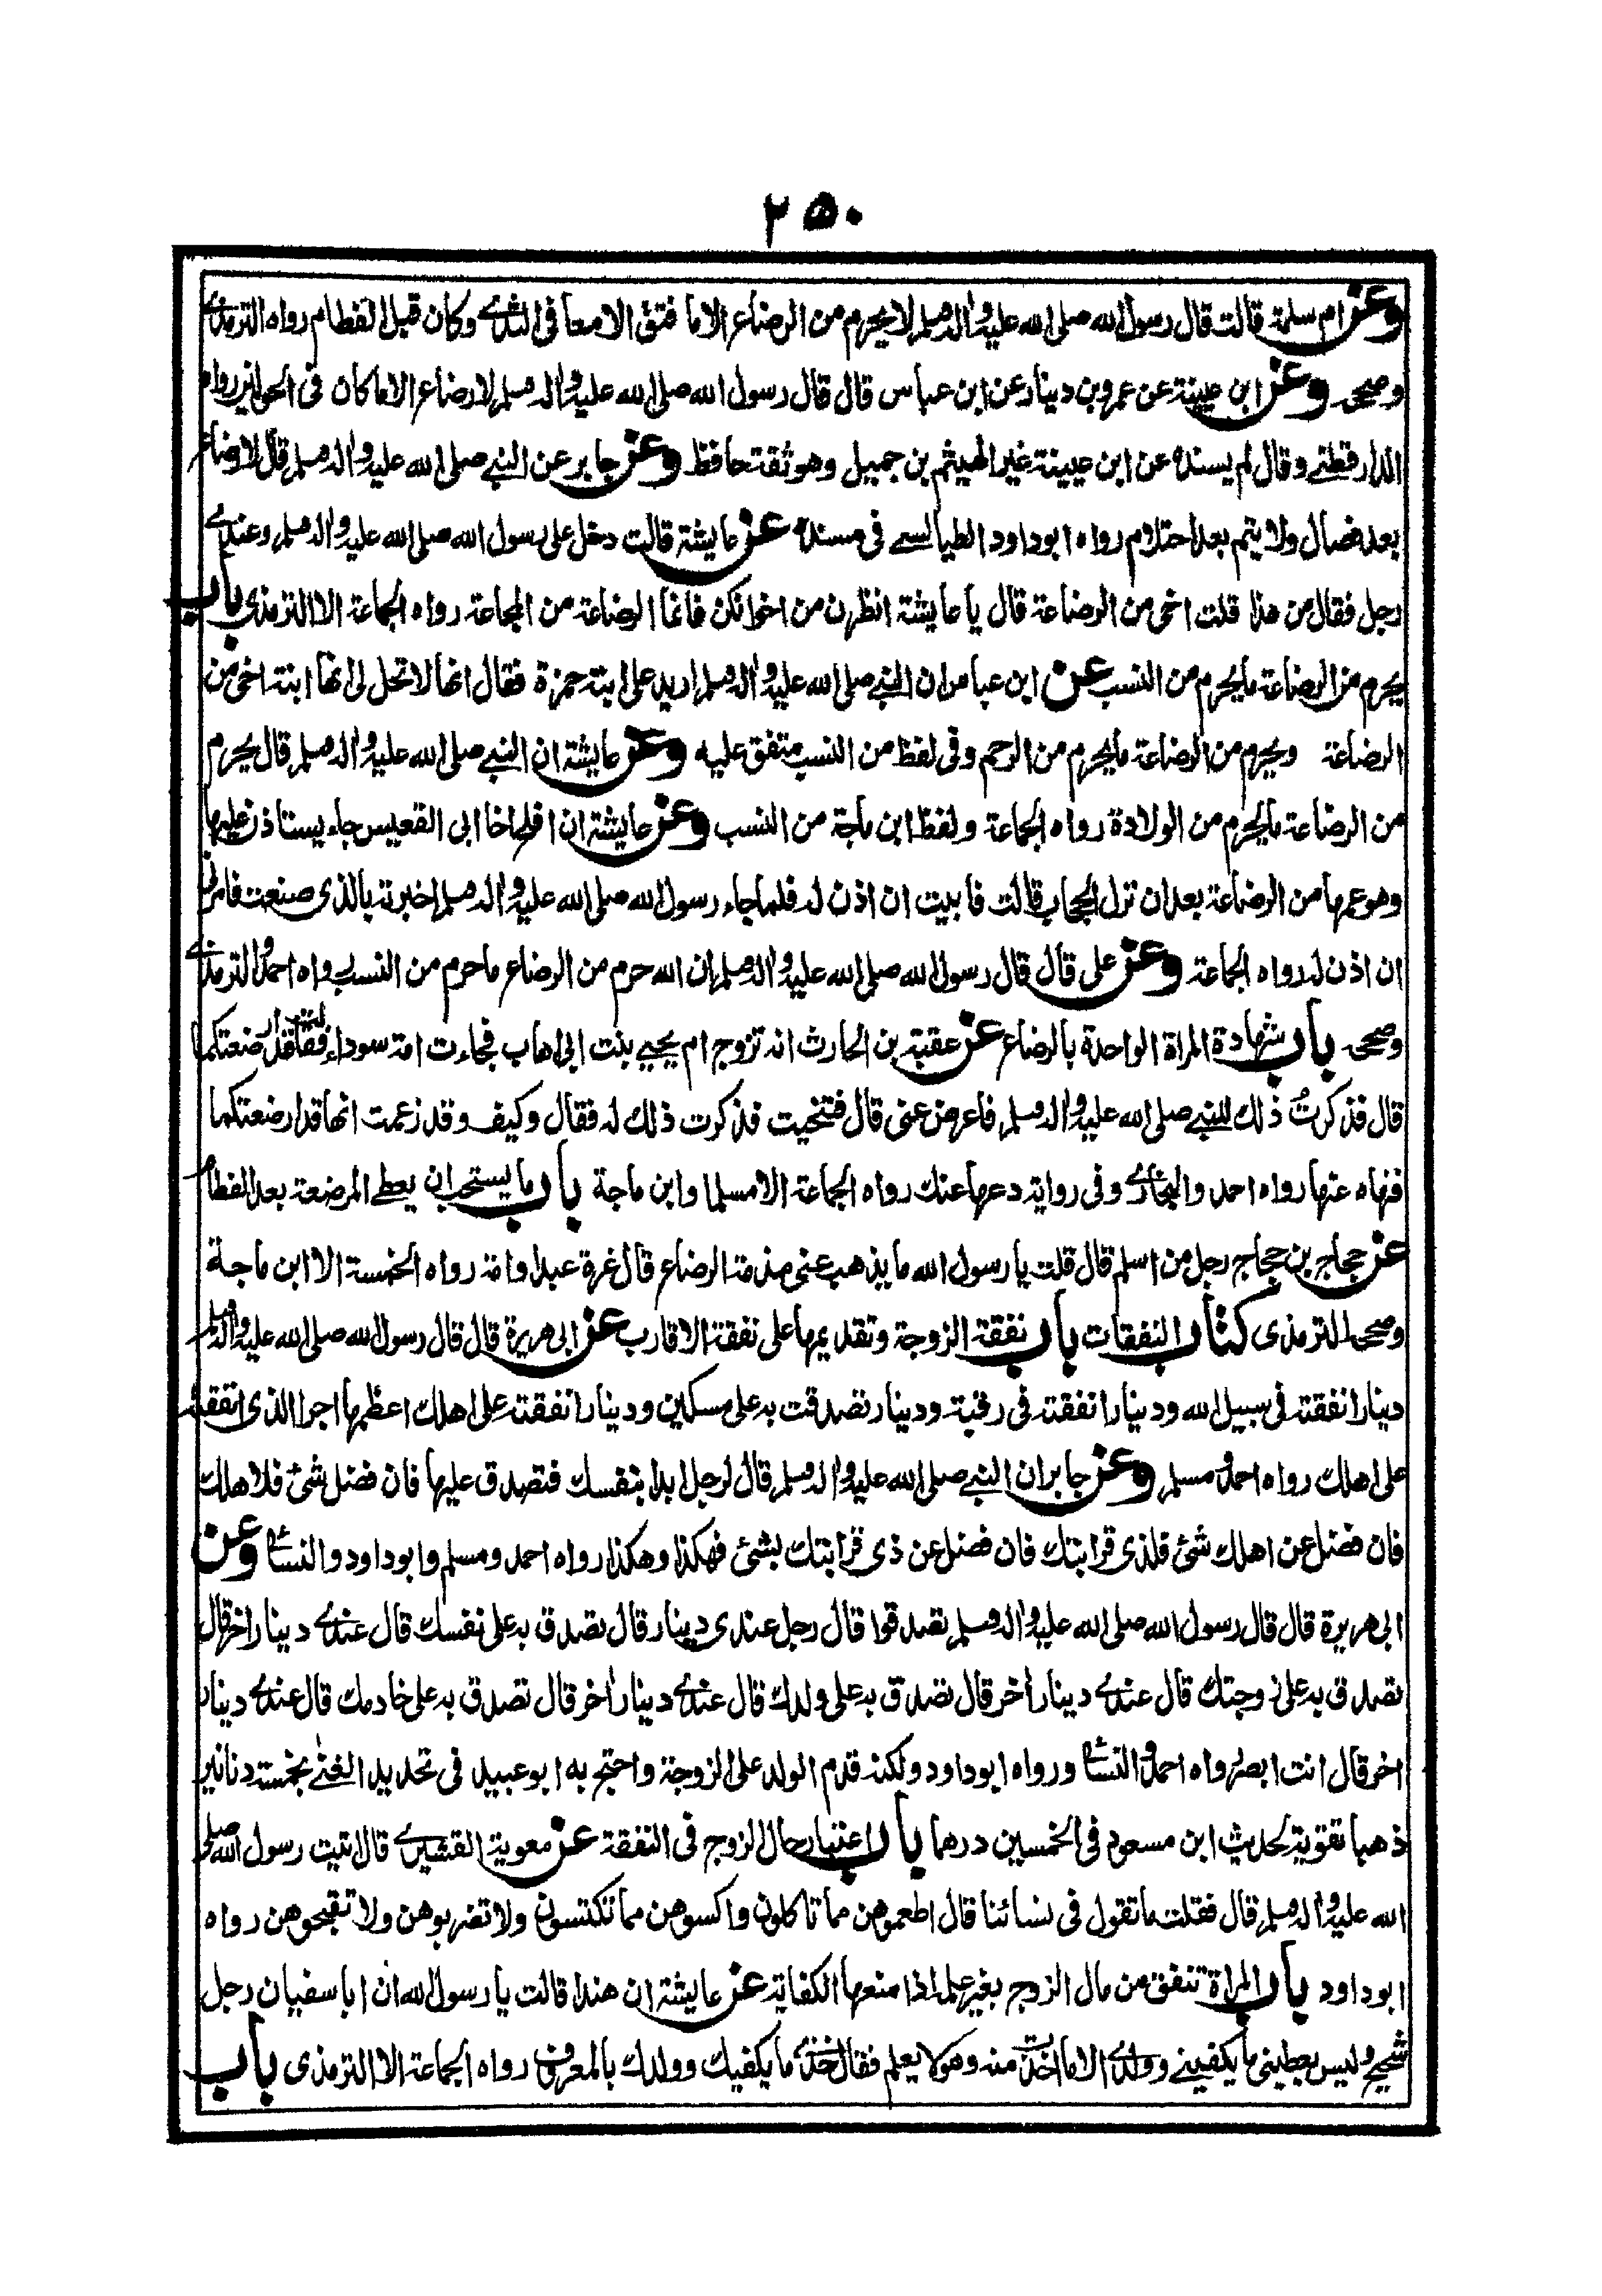 ٢٥٠
وعن ام سلمة قالت قال رسول الله صلى الله عليه واله وسلم لا يحرم من الرضاع الا ما فتق الامعا فى الثدى وكان قبل الفطام رواه الترمذى
وصححه وعن ابن عيينة عن عمرو بن دينار عن ابن عباس قال قال رسول الله صلى الله عليه واله وسلم لا رضاع الا ما كان فى الحولين رواه
الدارقطنى وقال لم يسنده عن ابن عيينة غير الهيثم بن جميل وهو ثقة حافظ وعن جابر عن النبى صلى الله عليه واله وسلم قال لا رضاع
بعد فصال ولا يتم بعد احتلام رواه ابوداود الطيالسى فى مسنده عن عايشة قالت دخل على رسول الله صلى الله عليه واله وسلم وعندى
رجل فقال من هذا قلت اخى من الرضاعة قال يا عايشة انظرن من اخوانكن فانما الرضاعة من المجاعة رواه الجماعة الا الترمذى باب
يحرم من الرضاعة ما يحرم من النسب عن ابن عباس ان النبى صلى الله عليه واله وسلم اريد على ابنة حمزة فقال انها لا تحل لى انها ابنة اخى من
الرضاعة ويحرم من الرضاعة ما يحرم من الرحم وفى لفظ من النسب متفق عليه وعن عايشة ان النبى صلى الله عليه واله وسلم قال يحرم
من الرضاعة ما يحرم من الولادة رواه الجماعة ولفظ ابن ماجة من النسب وعن عايشة ان افلح اخا ابى القعيس جاء يستاذن عليها
وهو عمها من الرضاعة بعد ان نزل الحجاب قالت فابيت ان اذن له فلما جاء رسول الله صلى الله عليه واله وسلم اخبرته بالذى صنعت فامرنى
ان اذن له رواه الجماعة وعن على قال قال رسول الله صلى الله عليه واله وسلم ان الله حرم من الرضاع ما حرم من النسب رواه احمد والترمذى
وصححه باب شهادة المراة الواحدة بالرضاع عن عقبة بن الحارث انه تزوج ام يحيى بنت ابى اهاب فجاءت امة سوداء فقالت قد ارضعتكما
قال فذكرتُ ذلك للنبى صلى الله عليه واله وسلم فاعرض عنى قال فتنحيت فذكرت ذلك له فقال وكيف وقد زعمت انها قد ارضعتكما
فنهاه عنها رواه احمد والبخارى وفى رواية دعها عنك رواه الجماعة الا مسلما وابن ماجة باب ما يستحب ان يعطى المرضعة بعد الفطام
عن حجاج بن حجاج رجل من اسلم قال قلت يا رسول الله ما يذهب عنى مذمة الرضاع قال غرة عبد او امة رواه الخمسة الا ابن ماجة
وصححه الترمذى كتاب النفقات باب نفقة الزوجة وتقديمها على نفقة الاقارب عن ابى هريرة قال قال رسول الله صلى الله عليه واله وسلم
دينار انفقته فى سبيل الله ودينار انفقته فى رقبة ودينار تصدقت به على مسكين ودينار انفقته على اهلك اعظمها اجرا الذى انفقته
على اهلك رواه احمد ومسلم وعن جابر ان النبى صلى الله عليه واله وسلم قال لرجل ابدا بنفسك فتصدق عليها فان فضل شئ فلاهلك
فان فضل عن اهلك شئ فلذى قرابتك فان فضل عن ذى قرابتك بشئ فهكذا وهكذا رواه احمد ومسلم وابوداود والنسائى وعن
ابى هريرة قال قال رسول الله صلى الله عليه واله وسلم تصدقوا قال رجل عندى دينار قال تصدق به على نفسك قال عندى دينار اخر قال
تصدق به على زوجتك قال عندى دينار اخر قال تصدق به على ولدك قال عندى دينار اخر قال تصدق به على خادمك قال عندى دينار
اخر قال انت ابصر رواه احمد والنسائى ورواه ابوداود ولكنه قدم الولد على الزوجة واحتج به ابو عبيد فى تحديد الغنى بخمسة دنانير
ذهبا تقوية لحديث ابن مسعود فى الخمسين درهما باب اعتبار حال الزوج فى النفقة عن معوية القشيرى قال اتيت رسول الله صلى
الله عليه واله وسلم قال فقلت ما تقول فى نسائنا قال اطعموهن مما تاكلون واكسوهن مما تكتسون ولا تضربوهن ولا تقبحوهن رواه
ابوداود باب المراة تنفق من مال الزوج بغير علمه اذا منعها الكفاية عن عايشة ان هندا قالت يا رسول الله ان ابا سفيان رجل
شحيح وليس يعطينى ما يكفينى وولدى الا ما اخذت منه وهو لا يعلم فقال خذى ما يكفيك وولدك بالمعروف رواه الجماعة الا الترمذى باب